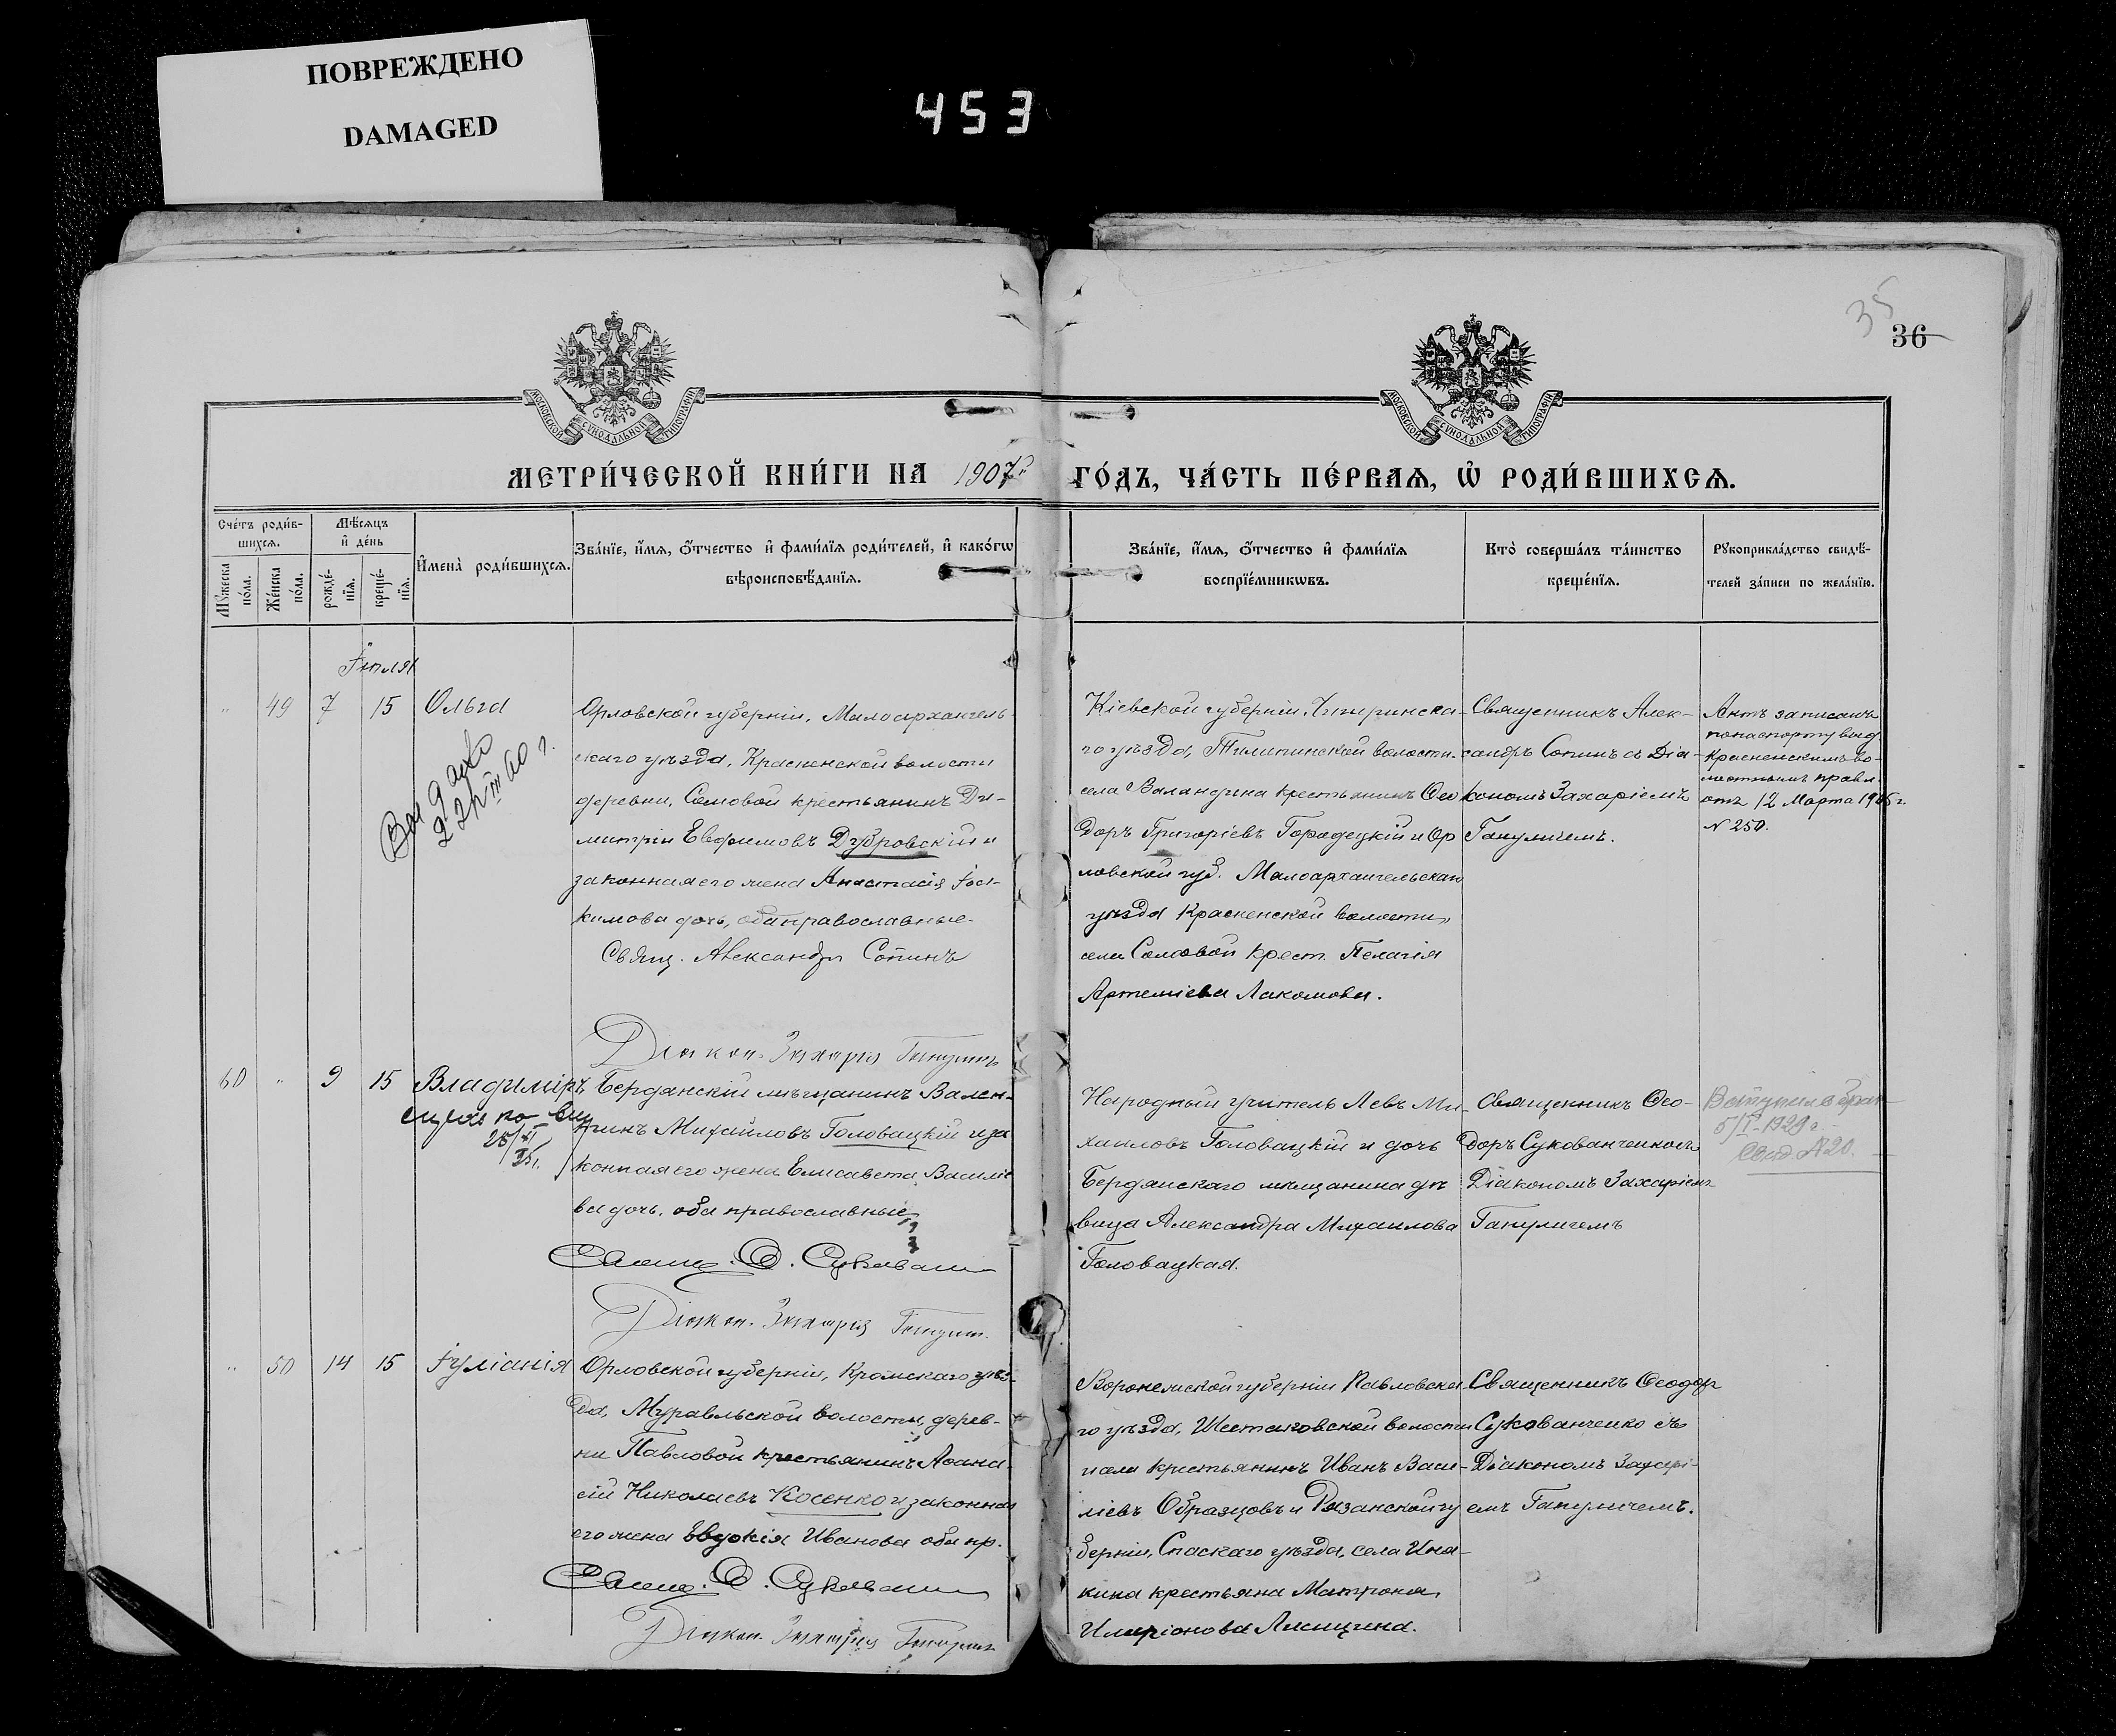 ПОВРЕЖДЕНО
DAMAGED
453
35
36
МОСКОВСКОЙ СѴНОДАЛЬНОЙ ТИПОГРАФІИ
МОСКОВСКОЙ СѴНОДАЛЬНОЙ ТИПОГРАФІИ
МЕТРИ́ЧЕСКОЙ КНИ́ГИ НА 1907й ГО́ДЪ, ЧА́СТЬ ПЕ́РВАѦ, Ѡ҆ РОДИ́ВШИХСѦ.
Сче́тъ роди́в-
шихсѧ.
Мꙋ́жеска
по́ла.
Же́нска
по́ла.
Мѣ́сѧцъ
и҆ де́нь
рожде́-
нїѧ.
креще́-
нїѧ.
И҆мена̀ роди́вшихсѧ.
Зва́нїе, и҆́мѧ, ѻ҆́тчество и҆ фами́лїѧ роди́телей, и҆ како́гѡ
вѣроисповѣ́данїѧ.
Зва́нїе, и҆́мѧ, ѻ҆́тчество и҆ фами́лїѧ
воспрїе́мникѡвъ.
Кто̀ соверша́лъ та́инство
креще́нїѧ.
Рꙋкоприкла́дство свидѣ́-
телей за́писи по жела́нїю.
Іюля
" 49 7 15 Ольга
Орловской губерніи, Малоархангель-
скаго уѣзда, Красненской волости
деревни, Сомовой крестьянинъ Ди-
митрій Евфимовъ Дубровскій и
законная его жена Анастасія Іоа-
кимова дочь, оба православные.
Свящ. Александръ Сопинъ
Діакон. Захарія
Кіевской губерніи, Чигиринска-
го уѣзда, Телепинской волости.
села Баландина крестьянинъ Ѳео
доръ Григоріевъ Городецкій и Ор
ловской губ. Малоархангельскаго
уѣзда Красненской волости,
села Сомовой крест. Пелагія
Артеміева Лакомова.
Священникъ Алек-
сандръ Сопинъ съ Діа-
кономъ Захаріемъ
Гапуличемъ.
Актъ записанъ
по паспорту выд.
Красненскимъ во-
лостнымъ правл.
отъ 12 Марта 1906 г.
N 250.
60 " 9 15 Владиміръ
Бердянскій мѣщанинъ Вален-
тинъ Михайловъ Головацкій и за
конная его жена Елисавета Василіе
ва дочь, оба православные
Свящ. Ѳ. Сукован
Діакон. Захарія
Народный учитель Левъ Ми-
хаиловъ Головацкій и дочь
Бердянскаго мѣщанина дѣ
вица Александра Михаилова
Головацкая.
Священникъ Ѳео-
доръ Сукованченко съ
Діакономъ Захаріемъ
Гапуличемъ
Вступил в брак
5/I-1929 г.
" 50 14 15 Іуліанія
Орловской губерніи, Кромскаго уѣз-
да, Муравльской волости, дерев-
ни Павловой крестьянинъ Аѳана
сій Николаевъ Косенко и законная
его жена Евдокія Иванова оба пр.
Свящ. Ѳ. Сукован
Діакон. Захарія
Воронежской губерніи Павловска
го уѣзда, Шестаковской волости
и села крестьянинъ Иванъ Васи-
ліевъ Образцовъ и Рязанской гу
берніи, Спаскаго уѣзда, села Ина-
кина крестьяна Матрона
Иларіонова
Священникъ Ѳеодоръ
Сукованченко съ
Діакономъ Захарі-
емъ Гапуличемъ.